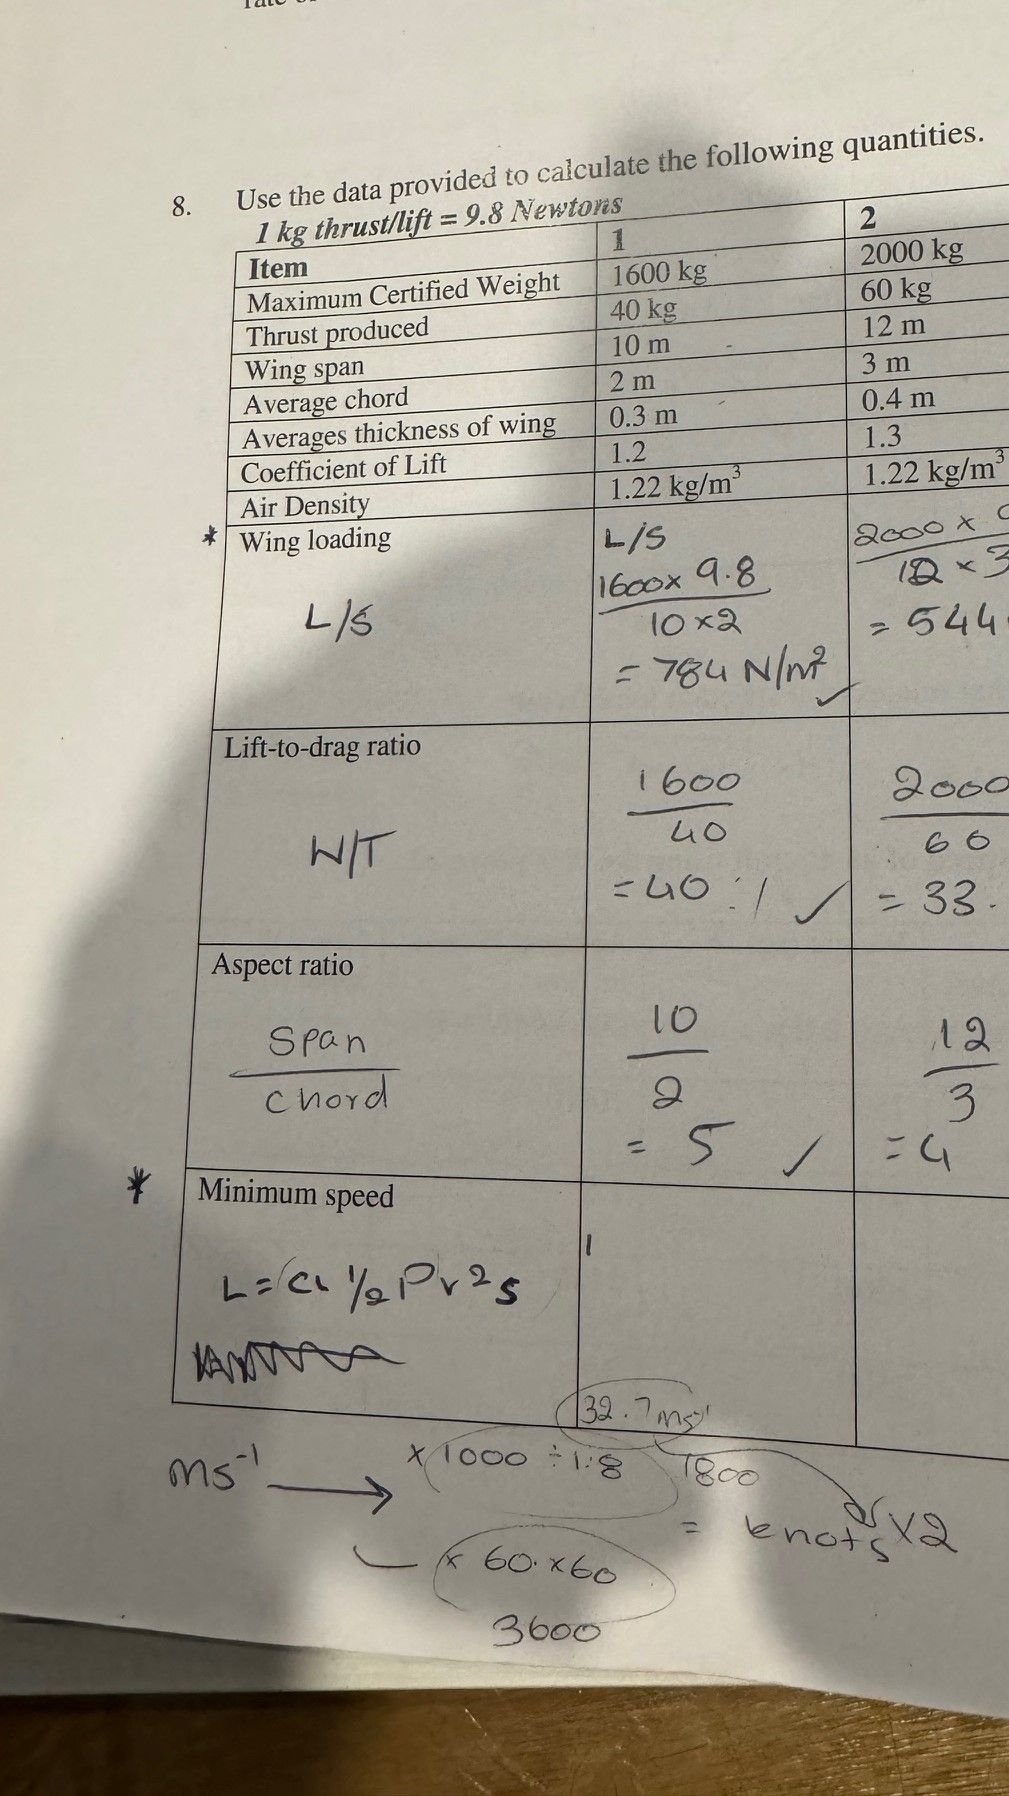 8. Use the data provided to calculate the following quantities.
1 kg thrust/lift = 9.8 Newtons
Item 1 2
Maximum Certified Weight 1600 kg 2000 kg
Thrust produced 40 kg 60 kg
Wing span 10 m 12 m
Average chord 2 m 3 m
Averages thickness of wing 0.3 m 0.4 m
Coefficient of Lift 1.2 1.3
Air Density 1.22 kg/m³ 1.22 kg/m³
* Wing loading L/S 2000 x
1600 x 9.8 12 x 3
L/S 10 x 2 = 544.
= 784 N/m² ✓
Lift-to-drag ratio
1600 2000
W/T 40 60
= 40 : 1 ✓ = 33.
Aspect ratio
Span 10 12
chord 2 3
= 5 ✓ = 4
* Minimum speed
L = CL ½ρv²s
32.7 ms⁻¹
ms⁻¹ → x 1000 ÷ 1.8 1800
= knots x2
x 60 x 60
3600